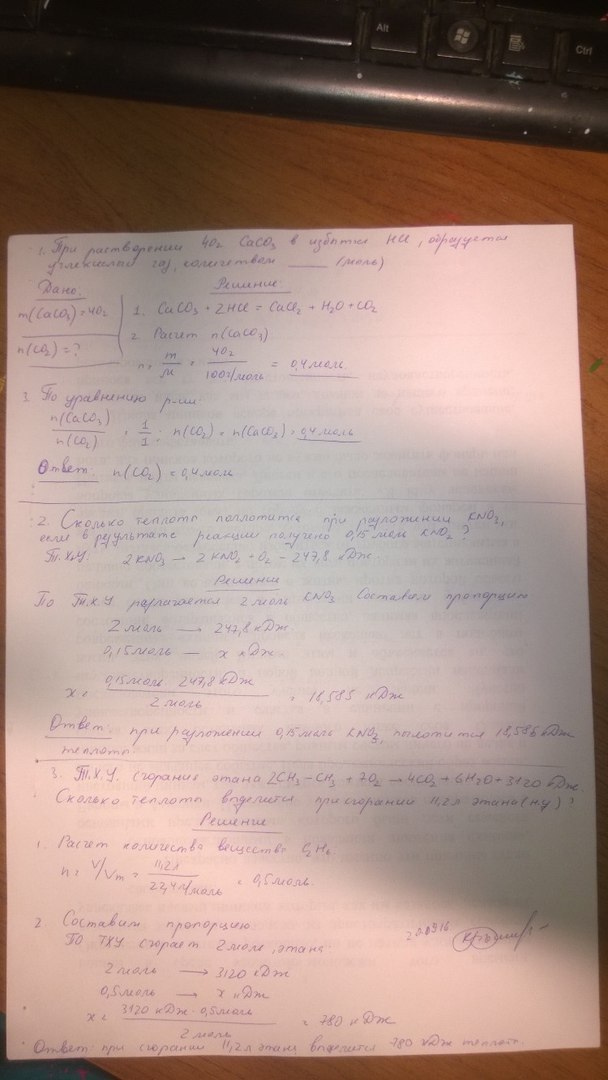 Alt
Ctrl
1. При растворении 40г CaCO3 в избытке HCl, образуется
углекислый газ, количеством ____ (моль)
Дано:
Решение:
m(CaCO3)=40г
n(CO2)=?
1. CaCO3 + 2HCl = CaCl2 + H2O + CO2
2. Расчет n(CaCO3)
n = m/M = 40г/100г/моль = 0,4 моль.
3. По уравнению р-ии:
n(CaCO3)/n(CO2) = 1/1; n(CO2) = n(CaCO3) = 0,4 моль
Ответ: n(CO2) = 0,4 моль
2. Сколько теплоты поглотится при разложении KNO3,
если в результате реакции получено 0,15 моль KNO2?
Т.Х.У. 2KNO3 → 2KNO2 + O2 – 247,8 кДж.
Решение
По Т.Х.У разлагается 2 моль KNO3 Составим пропорцию
2 моль → 247,8 кДж.
0,15 моль — x кДж.
x = 0,15 моль · 247,8 кДж / 2 моль = 18,585 кДж
Ответ: при разложении 0,15 моль KNO3, поглотится 18,586 кДж
теплоты.
3. Т.Х.У. сгорания этана 2CH3–CH3 + 7O2 → 4CO2 + 6H2O + 3120 кДж.
Сколько теплоты выделится при сгорании 11,2 л этана (н.у)?
Решение
1. Расчет количества вещества C2H6.
n = V/Vm = 11,2л/22,4л/моль = 0,5 моль.
2 Составим пропорцию
По ТХУ сгорает 2 моль, этана:
2 моль → 3120 кДж
0,5 моль → x кДж
x = 3120 кДж · 0,5 моль / 2 моль = 780 кДж
Ответ: при сгорании 11,2 л этана выделится 780 кДж теплоты.